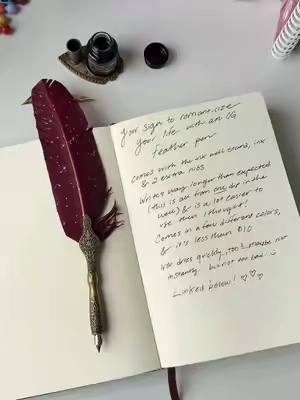 your sign to romanticize
your life with an OG
feather pen
Comes with the ink well stand, ink
& 2 extra nibs
Writes way longer than expected
(this is all from one dip in the
well) & is a lot easier to
use than I thought!
Comes in a few different colors,
& it's less than $10
Ink dries quickly, too! maybe not
instantly but not too bad :)
Linked below! ♡♡♡